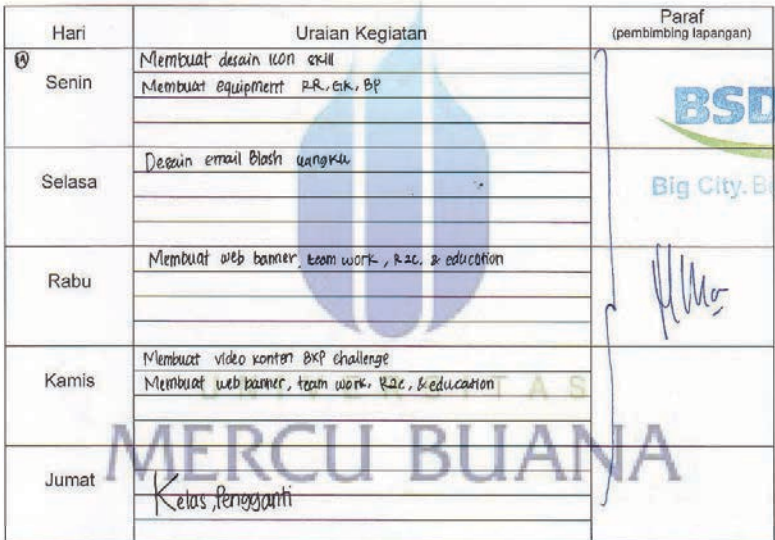 Hari Uraian Kegiatan Paraf
(pembimbing lapangan)
Senin
Membuat desain icon skill
Membuat equipment RR, GK, BP
BSD
Big City. B
Selasa
Desain email Blash uangku
Rabu
Membuat web banner, team work, R2C, & education
Kamis
Membuat video konten BXP challenge
Membuat web banner, team work, R2C, & education
UNIVERSITAS
MERCU BUANA
Jumat
Kelas Pengganti